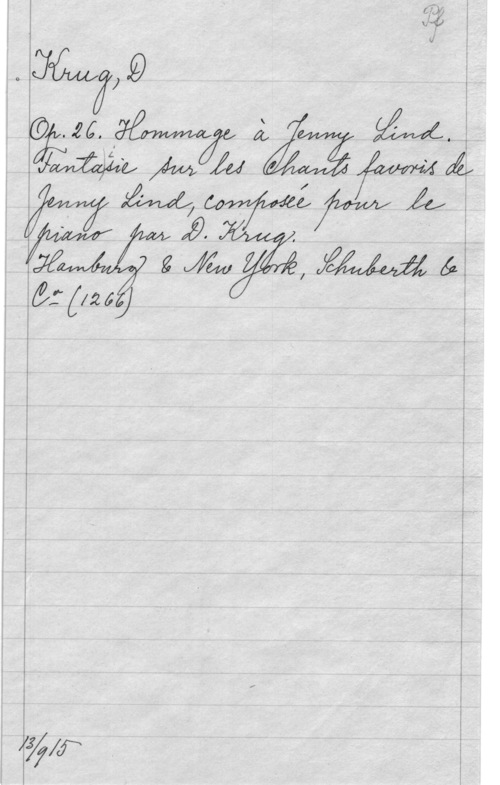 Pf
Krug, D
Op. 26. Hommage à Jenny Lind.
Fantasie sur les Chants favoris de
Jenny Lind, composée pour le
piano par D. Krug.
Hamburg & New York, Schuberth &
Co (1266)
13/9 15